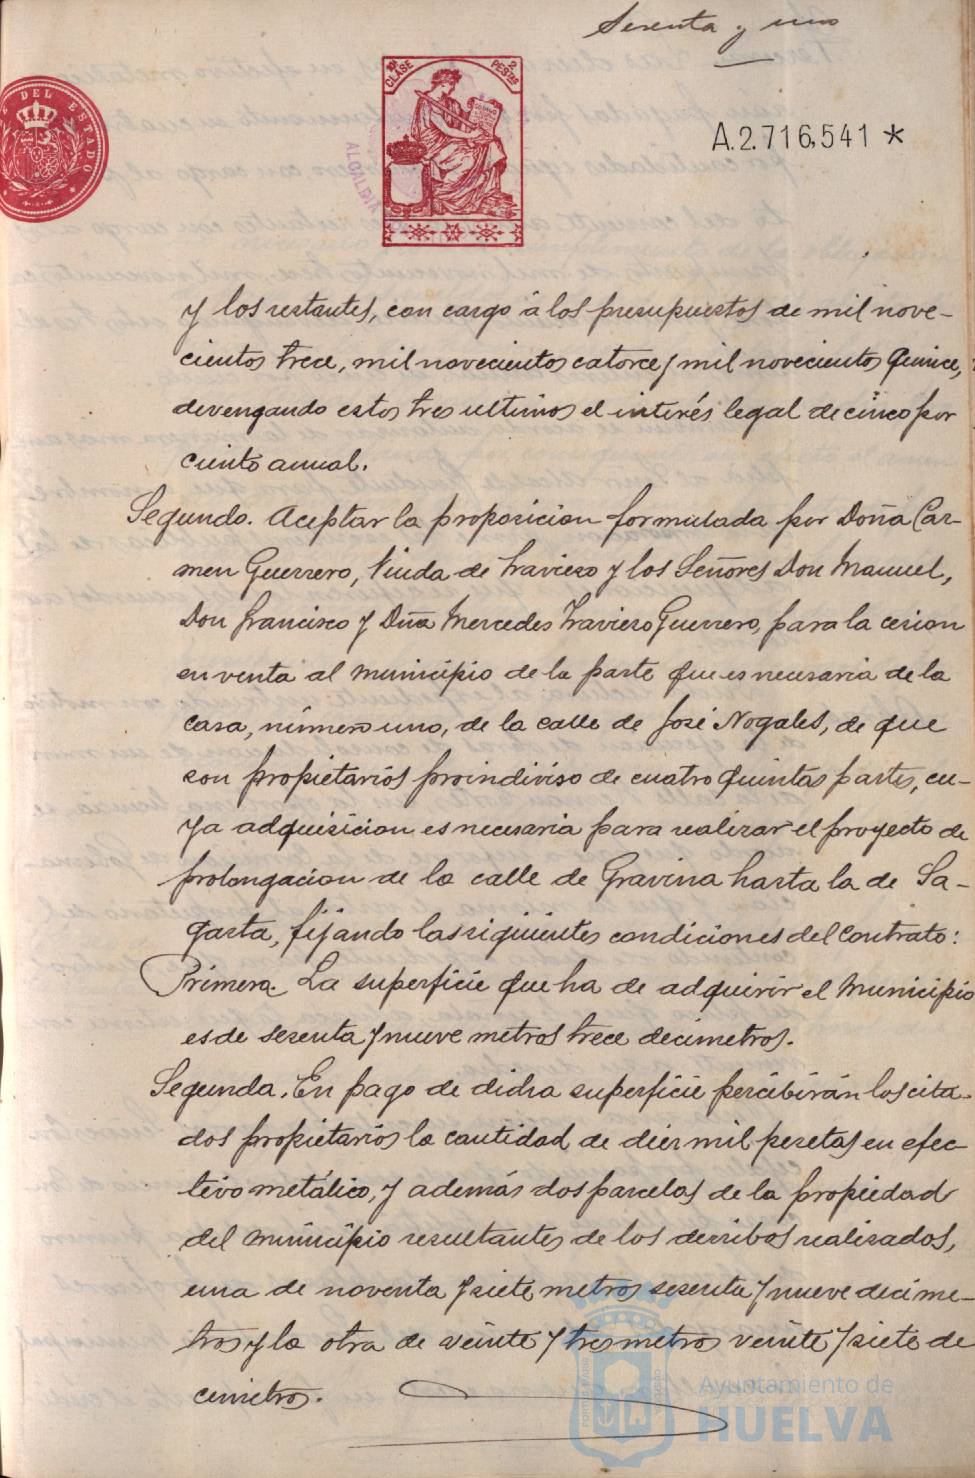 Sesenta y uno
DEL ESTADO
10ª CLASE
2 PESTAS
A.2.716,541 *
ALCALDIA
y los restantes, con cargo á los presupuestos de mil nove-
cientos trece, mil novecientos catorce y mil novecientos quince,
devengando estos tres ultimos el interés legal de cinco por
ciento anual.
Segundo. Aceptar la proposicion formulada por Doña Car-
men Guerrero, Viuda de Travieso y los Señores Don Manuel,
Don Francisco y Dña Mercedes Travieso Guerrero, para la cesion
en venta al municipio de la parte que es necesaria de la
casa, número uno, de la calle de José Nogales, de que
son propietarios proindiviso de cuatro quintas partes, cu-
ya adquisicion es necesaria para realizar el proyecto de
prolongacion de la calle de Gravina hasta la de Sa-
gasta, fijando las siguientes condiciones del contrato:
Primera. La superficie que ha de adquirir el Municipio
es de sesenta y nueve metros trece decimetros.
Segunda. En pago de dicha superficie percibirán los cita-
dos propietarios la cantidad de diez mil pesetas en efec-
tivo metálico, y además dos parcelas de la propiedad
del municipio resultantes de los derribos realizados,
una de noventa y siete metros sesenta y nueve decime-
tros y la otra de veinte y tres metros veinte y siete de
cimetros.
Ayuntamiento de
HUELVA